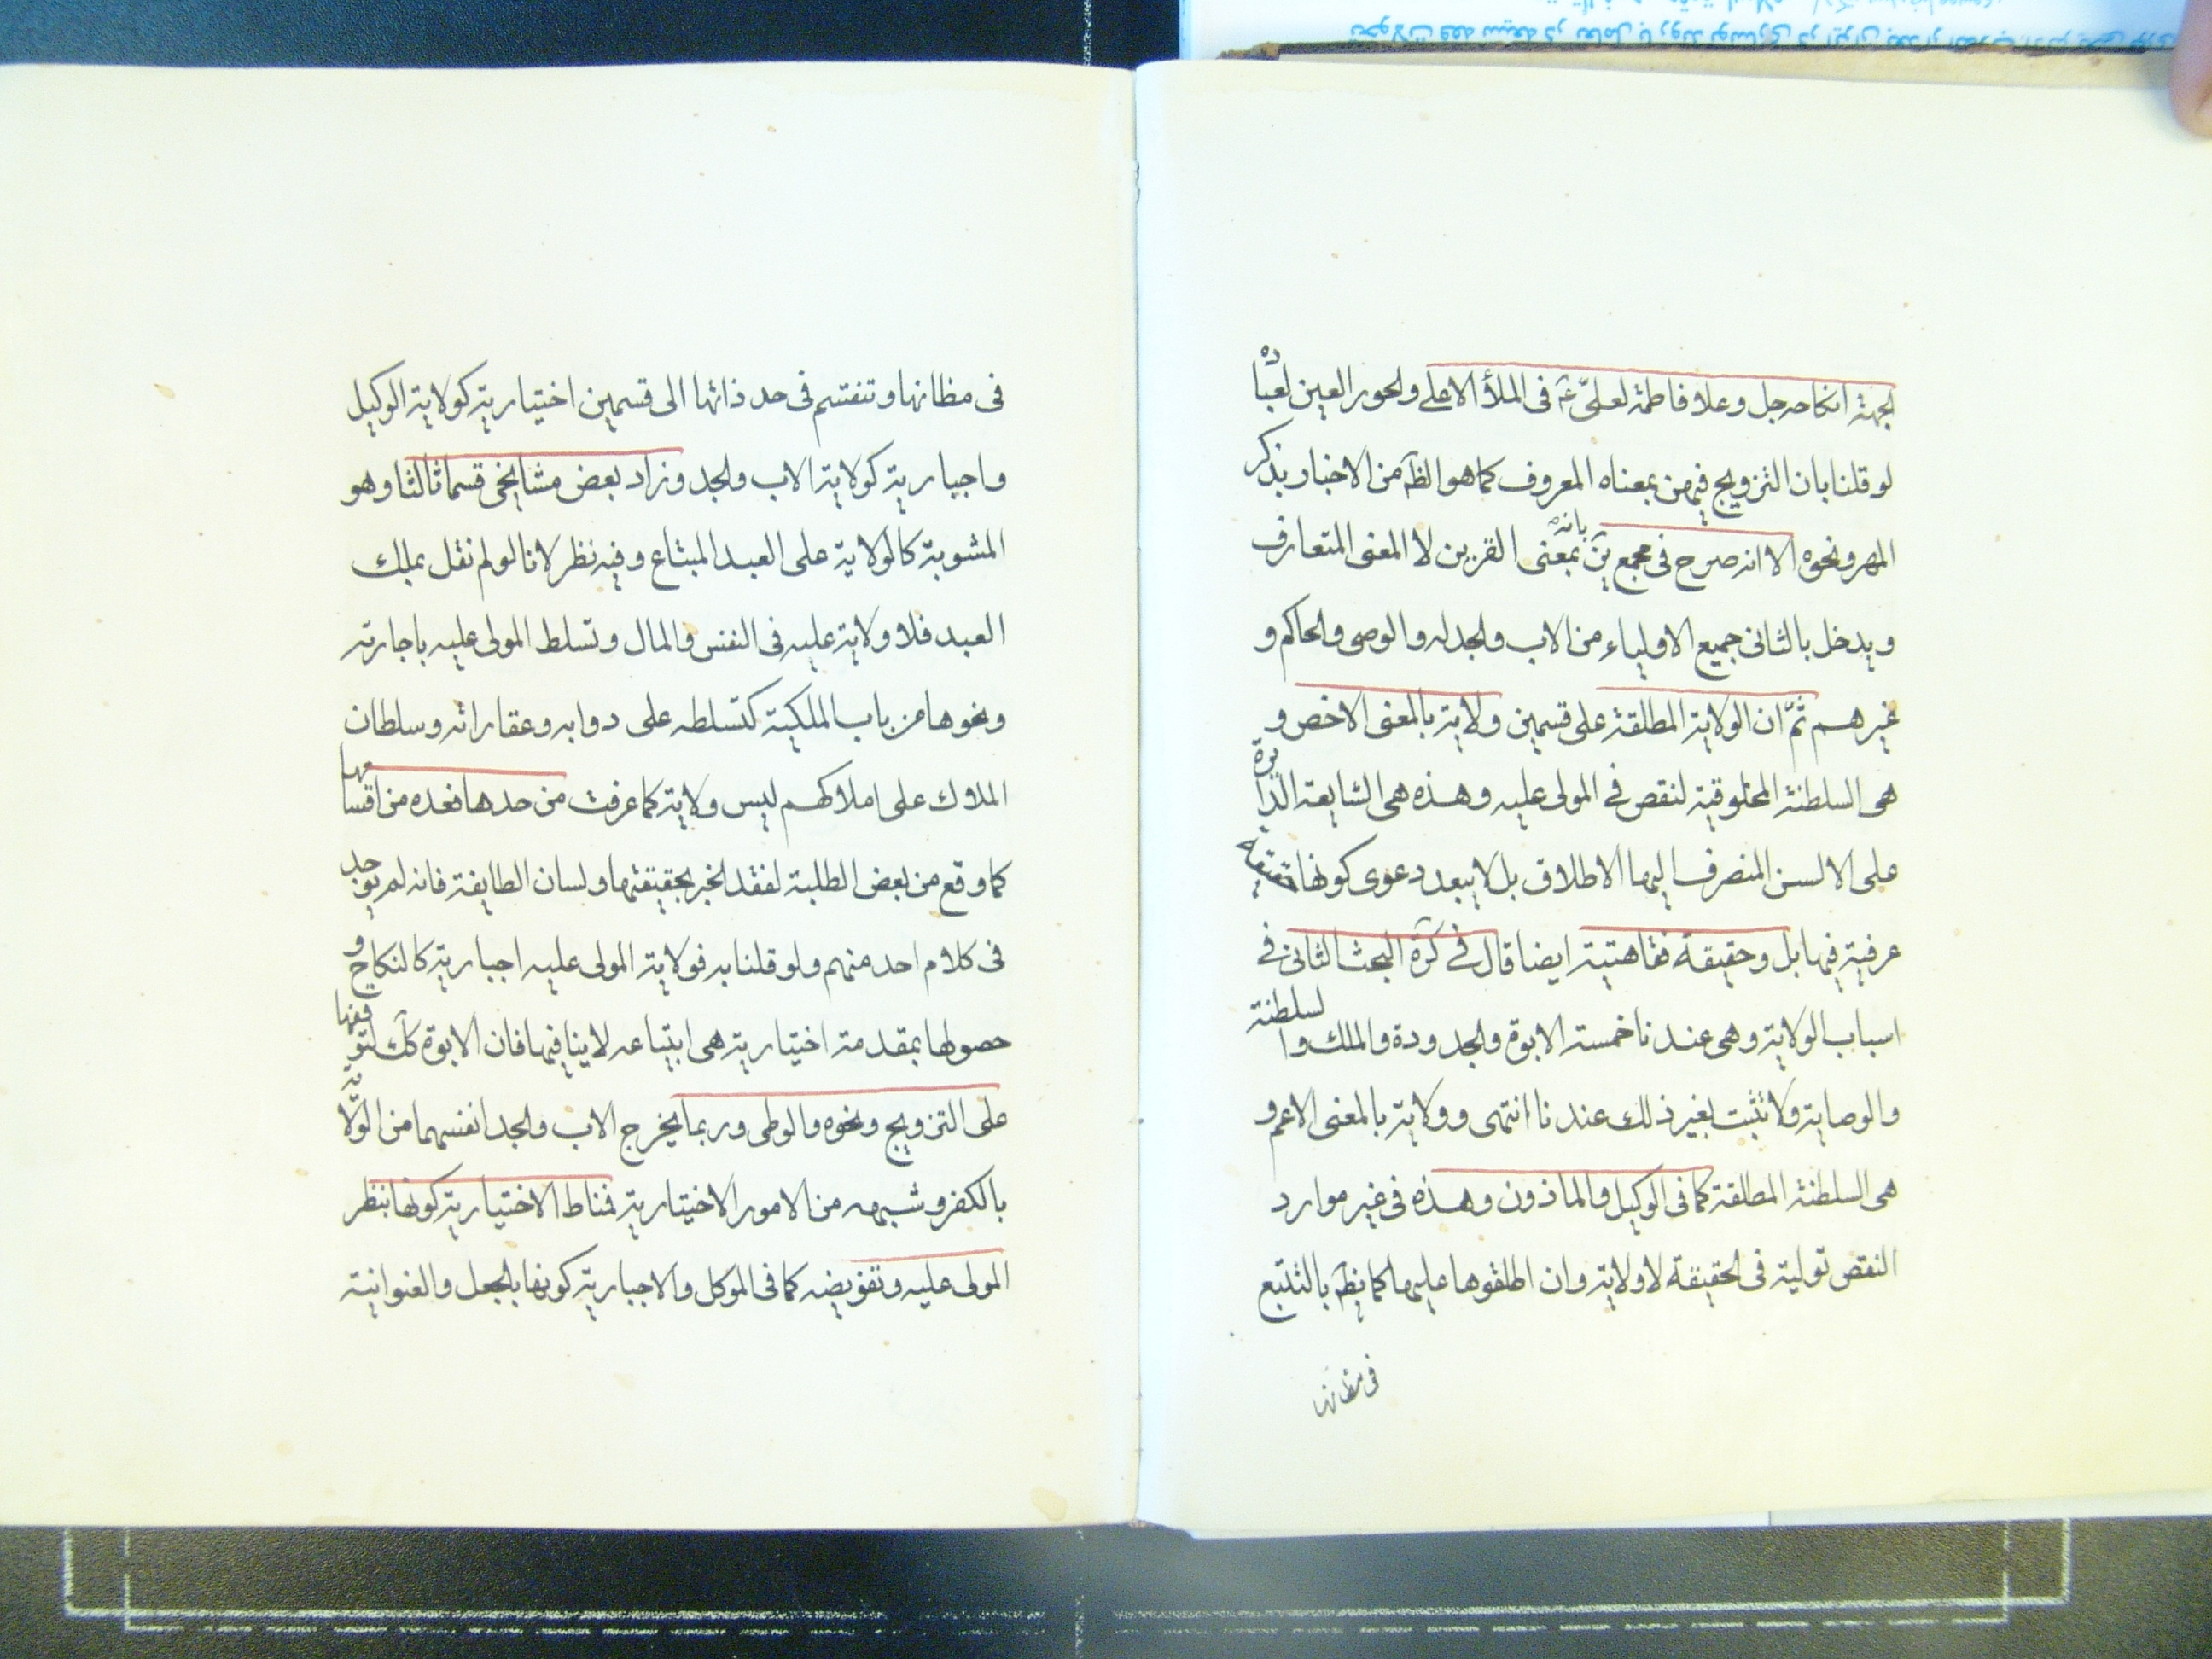 لجهة انكاحه جل وعلا فاطمة لعلىّ عۤ فى الملأ الاعلے والحور العين لعباده
لو قلنا بان التزويج فيهن بمعناه المعروف كما هو الظۤ من الاخبار بذكر
المهر ونحوه الا انه صرح فى مجمع ينۤ بانه بمعنى القرين لا المعنى المتعارف
ويدخل بالثانى جميع الاولياء من الاب والجد له والوصى والحاكم و
غيرهم ثمّ ان الولاية المطلقة على قسمين ولاية بالمعنى الاخص و
هى السلطنة المخلوقية لنقص فے المولى عليه وهذه هى الشايعة الدّائرة
على الالسن المنصرف اليها الاطلاق بل لا يبعد دعوى كونها حقيقة
عرفية فيها بل وحقيقة فقاهتية ايضا قال فے كرۤه البحث الثانى فے
اسباب الولاية وهى عندنا خمسة الابوة والجدودة والملك والسلطنة
والوصاية ولا تثبت بغير ذلك عندنا انتهى وولاية بالمعنى الاعم و
هى السلطنة المطلقة كما فى الوكيل والماذون وهذه فى غير موارد
النقص تولية فى الحقيقة لا ولاية وان اطلقوها عليها كما يظۤ بالتتبع
فى مظانها
فى مظانها وتنقسم فى حد ذاتها الى قسمين اختيارية كولاية الوكيل
واجبارية كولاية الاب والجد وزاد بعض مشايخى قسما ثالثا وهو
المشوبة كالولاية على العبد المبتاع وفيه نظر لانا لو لم نقل بملك
العبد فلا ولاية عليه فى النفس والمال وتسلط المولى عليه باجارته
ونحوها من باب الملكية كتسلطه على دوابه وعقاراته وسلطان
الملاك على املاكهم ليس ولاية كما عرفت من حدها فعده من اقسامها
كما وقع من بعض الطلبة لفقد الخبر بحقيقتها ولسان الطايفة فانه لم يوجد
فى كلام احد منهم ولو قلنا به فولاية المولى عليه اجبارية كالنكاح و
حصولها بمقدمة اختيارية هى ابتياعه لا ينافيها فان الابوة ككۤ لتوقفها
على التزويج ونحوه والوطى وربما يخرج الاب والجد انفسهما من الولاية
بالكفر وشبهه من الامور الاختيارية فمناط الاختيارية كونها بنظر
المولى عليه وتفويضه كما فى الموكل والاجبارية كونها بالجعل والعنوانية